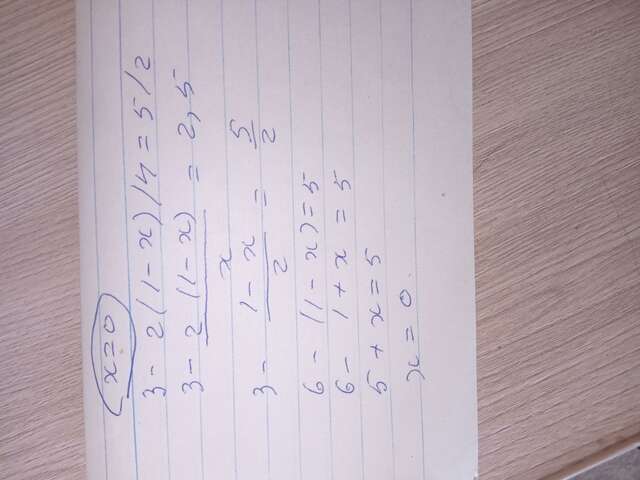 x=0
3-2(1-x)/4=5/2
3-2(1-x)/x=2,5
3-1-x/2=5/2
6-(1-x)=5
6-1+x=5
5+x=5
x=0